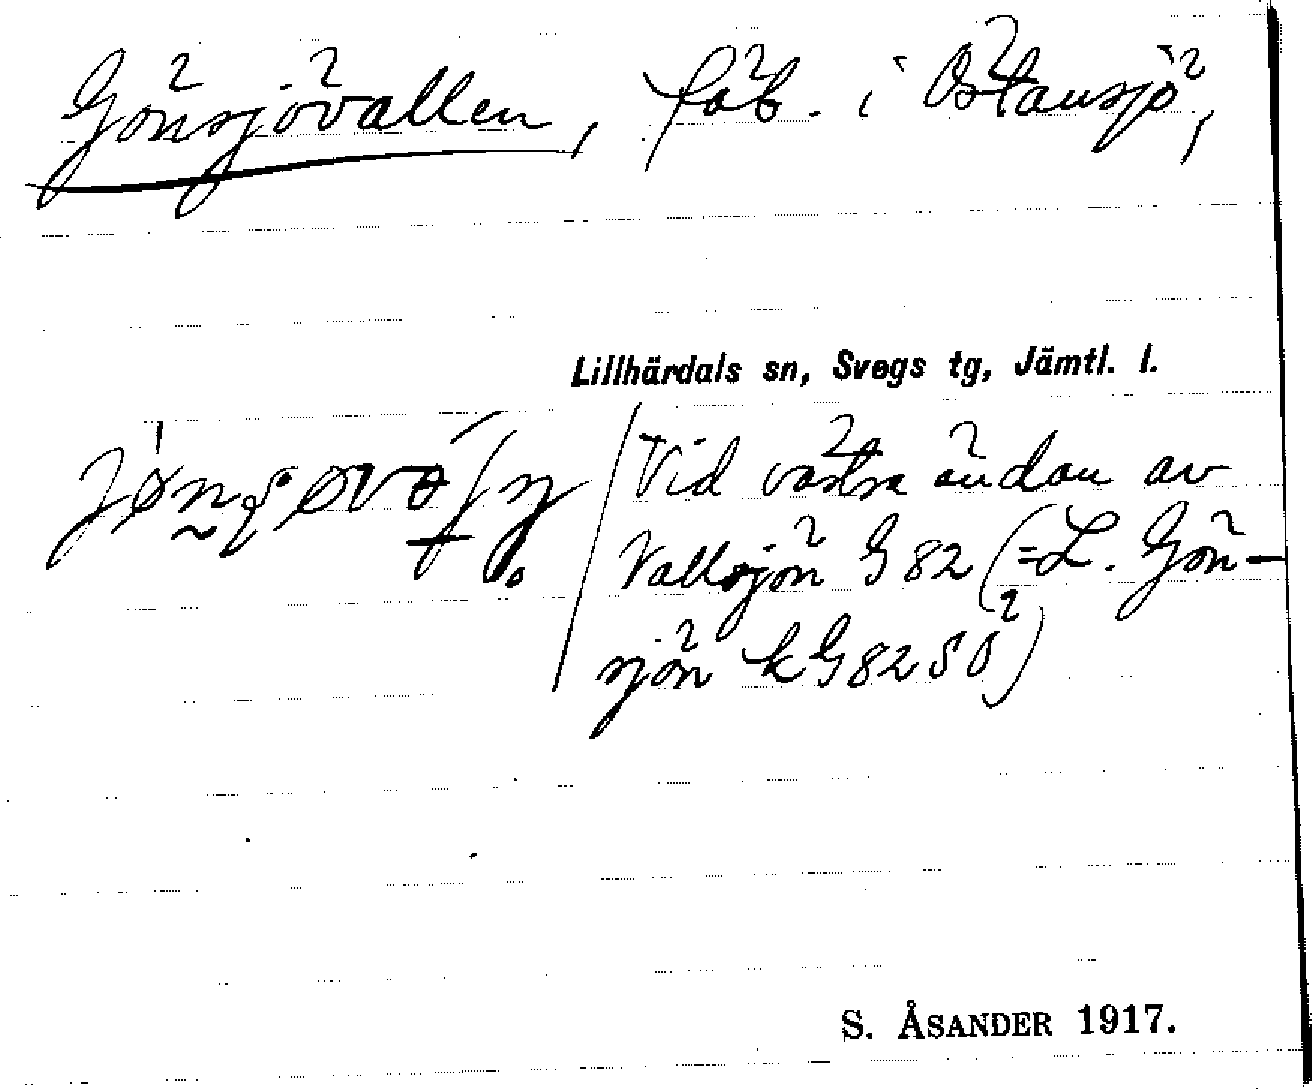 Gönsjövallen, fäb. i Östansjö,
Lillhärdals sn, Svegs tg, Jämtl. l.
Vid västra ändan av
Vallsjön G 82 (=L. Gön-
sjön k G 82 SÖ)
S. ÅSANDER 1917.